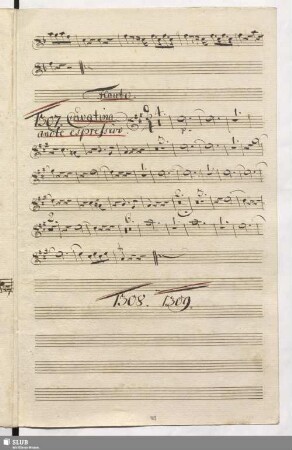 Flauto
1307 Cavatina
andte espressivo.
p.
1308. 1309.
SLUB